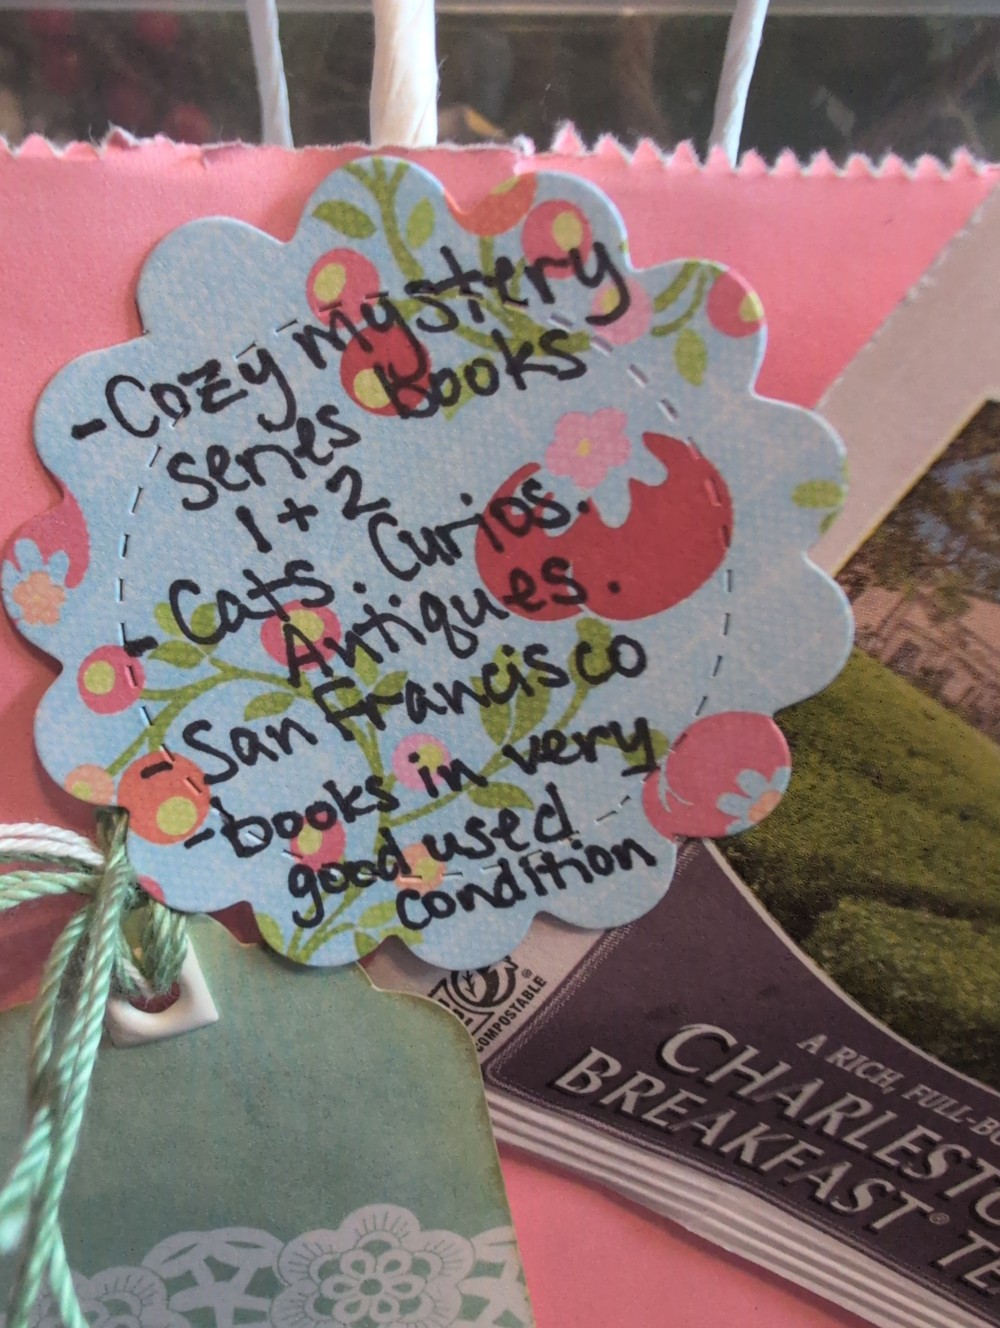 - Cozy mystery
series books
1 + 2
- Cats. Curios.
Antiques.
- San Francisco
- books in very
good used
condition
COMPOSTABLE®
A RICH, FULL-BO
CHARLESTO
BREAKFAST® TE